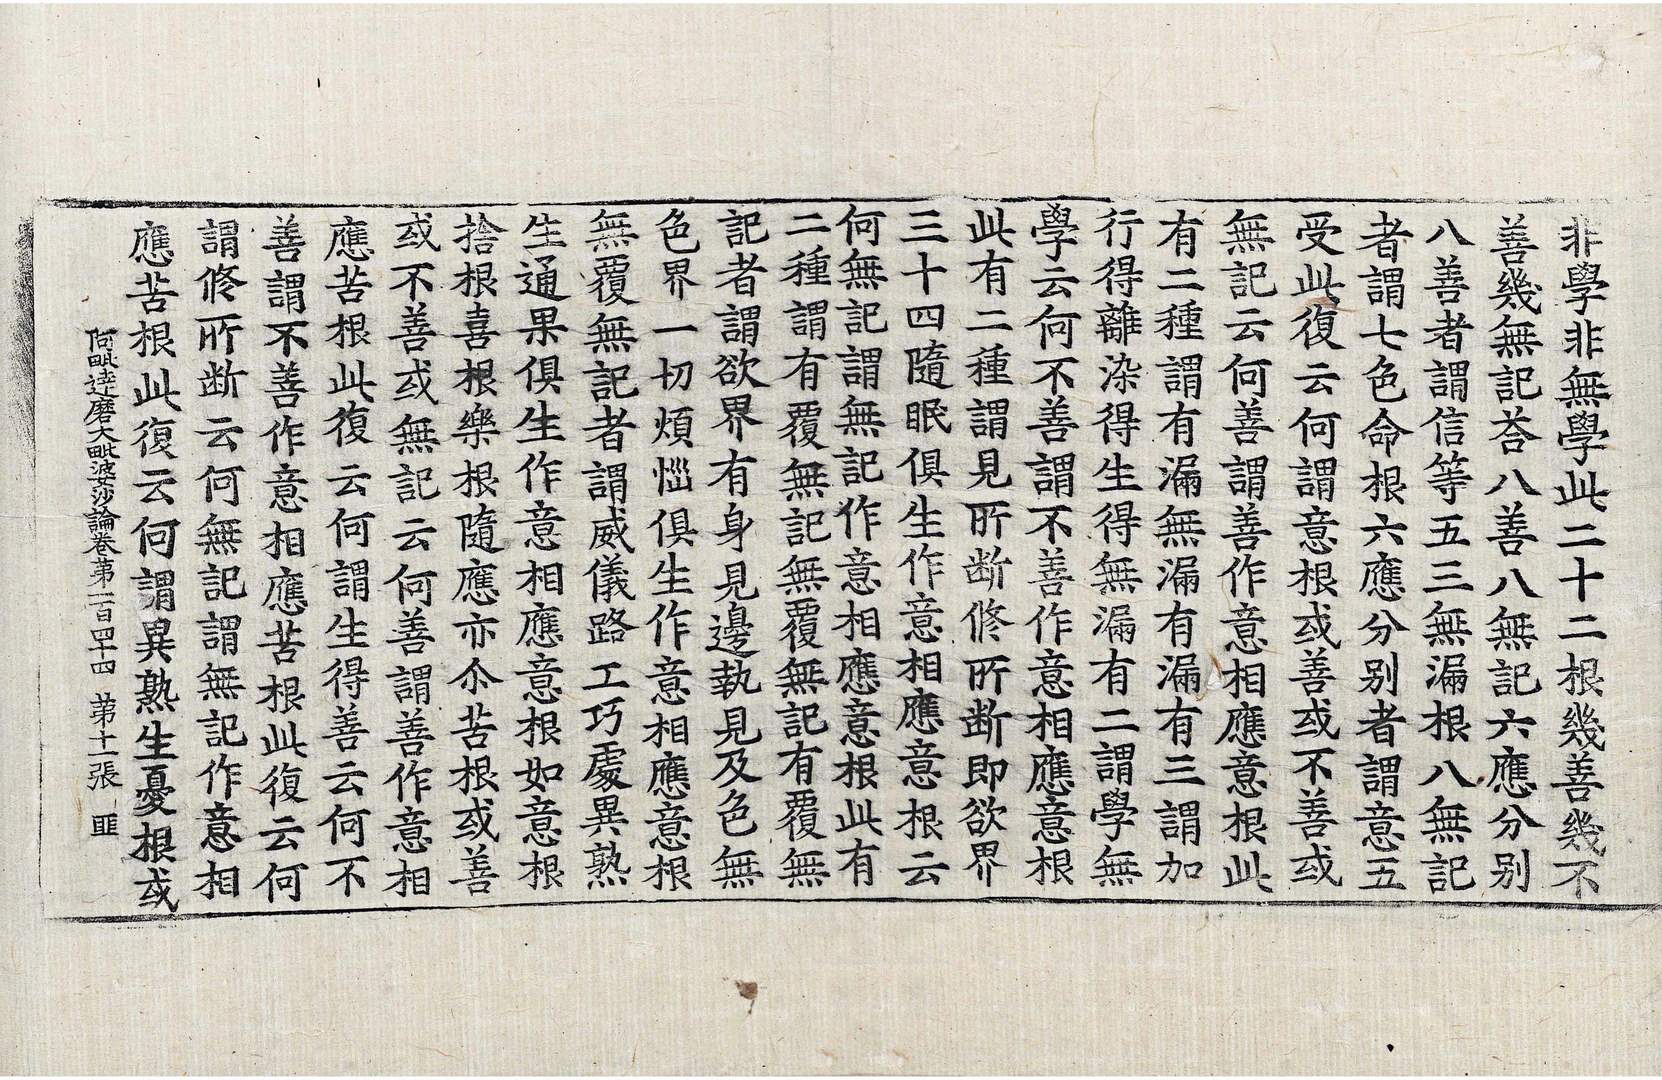 非學非無學此二十二根幾善幾不
善幾無記荅八善八無記六應分别
八善者謂信等五三無漏根八無記
者謂七色命根六應分别者謂意五
受此復云何謂意根或善或不善或
無記云何善謂善作意相應意根此
有二種謂有漏無漏有漏有三謂加
行得離染得生得無漏有二謂學無
學云何不善謂不善作意相應意根
此有二種謂見所断修所断即欲界
三十四隨眠俱生作意相應意根云
何無記謂無記作意相應意根此有
二種謂有覆無記無覆無記有覆無
記者謂欲界有身見邊執見及色無
色界一切煩惱俱生作意相應意根
無覆無記者謂威儀路工巧處異熟
生通果俱生作意相應意根如意根
捨根喜根樂根隨應亦尒苦根或善
或不善或無記云何善謂善作意相
應苦根此復云何謂生得善云何不
善謂不善作意相應苦根此復云何
謂修所断云何無記謂無記作意相
應苦根此復云何謂異熟生憂根或
阿毗達磨大毗婆沙論卷第一百四十四　第十一張　匪